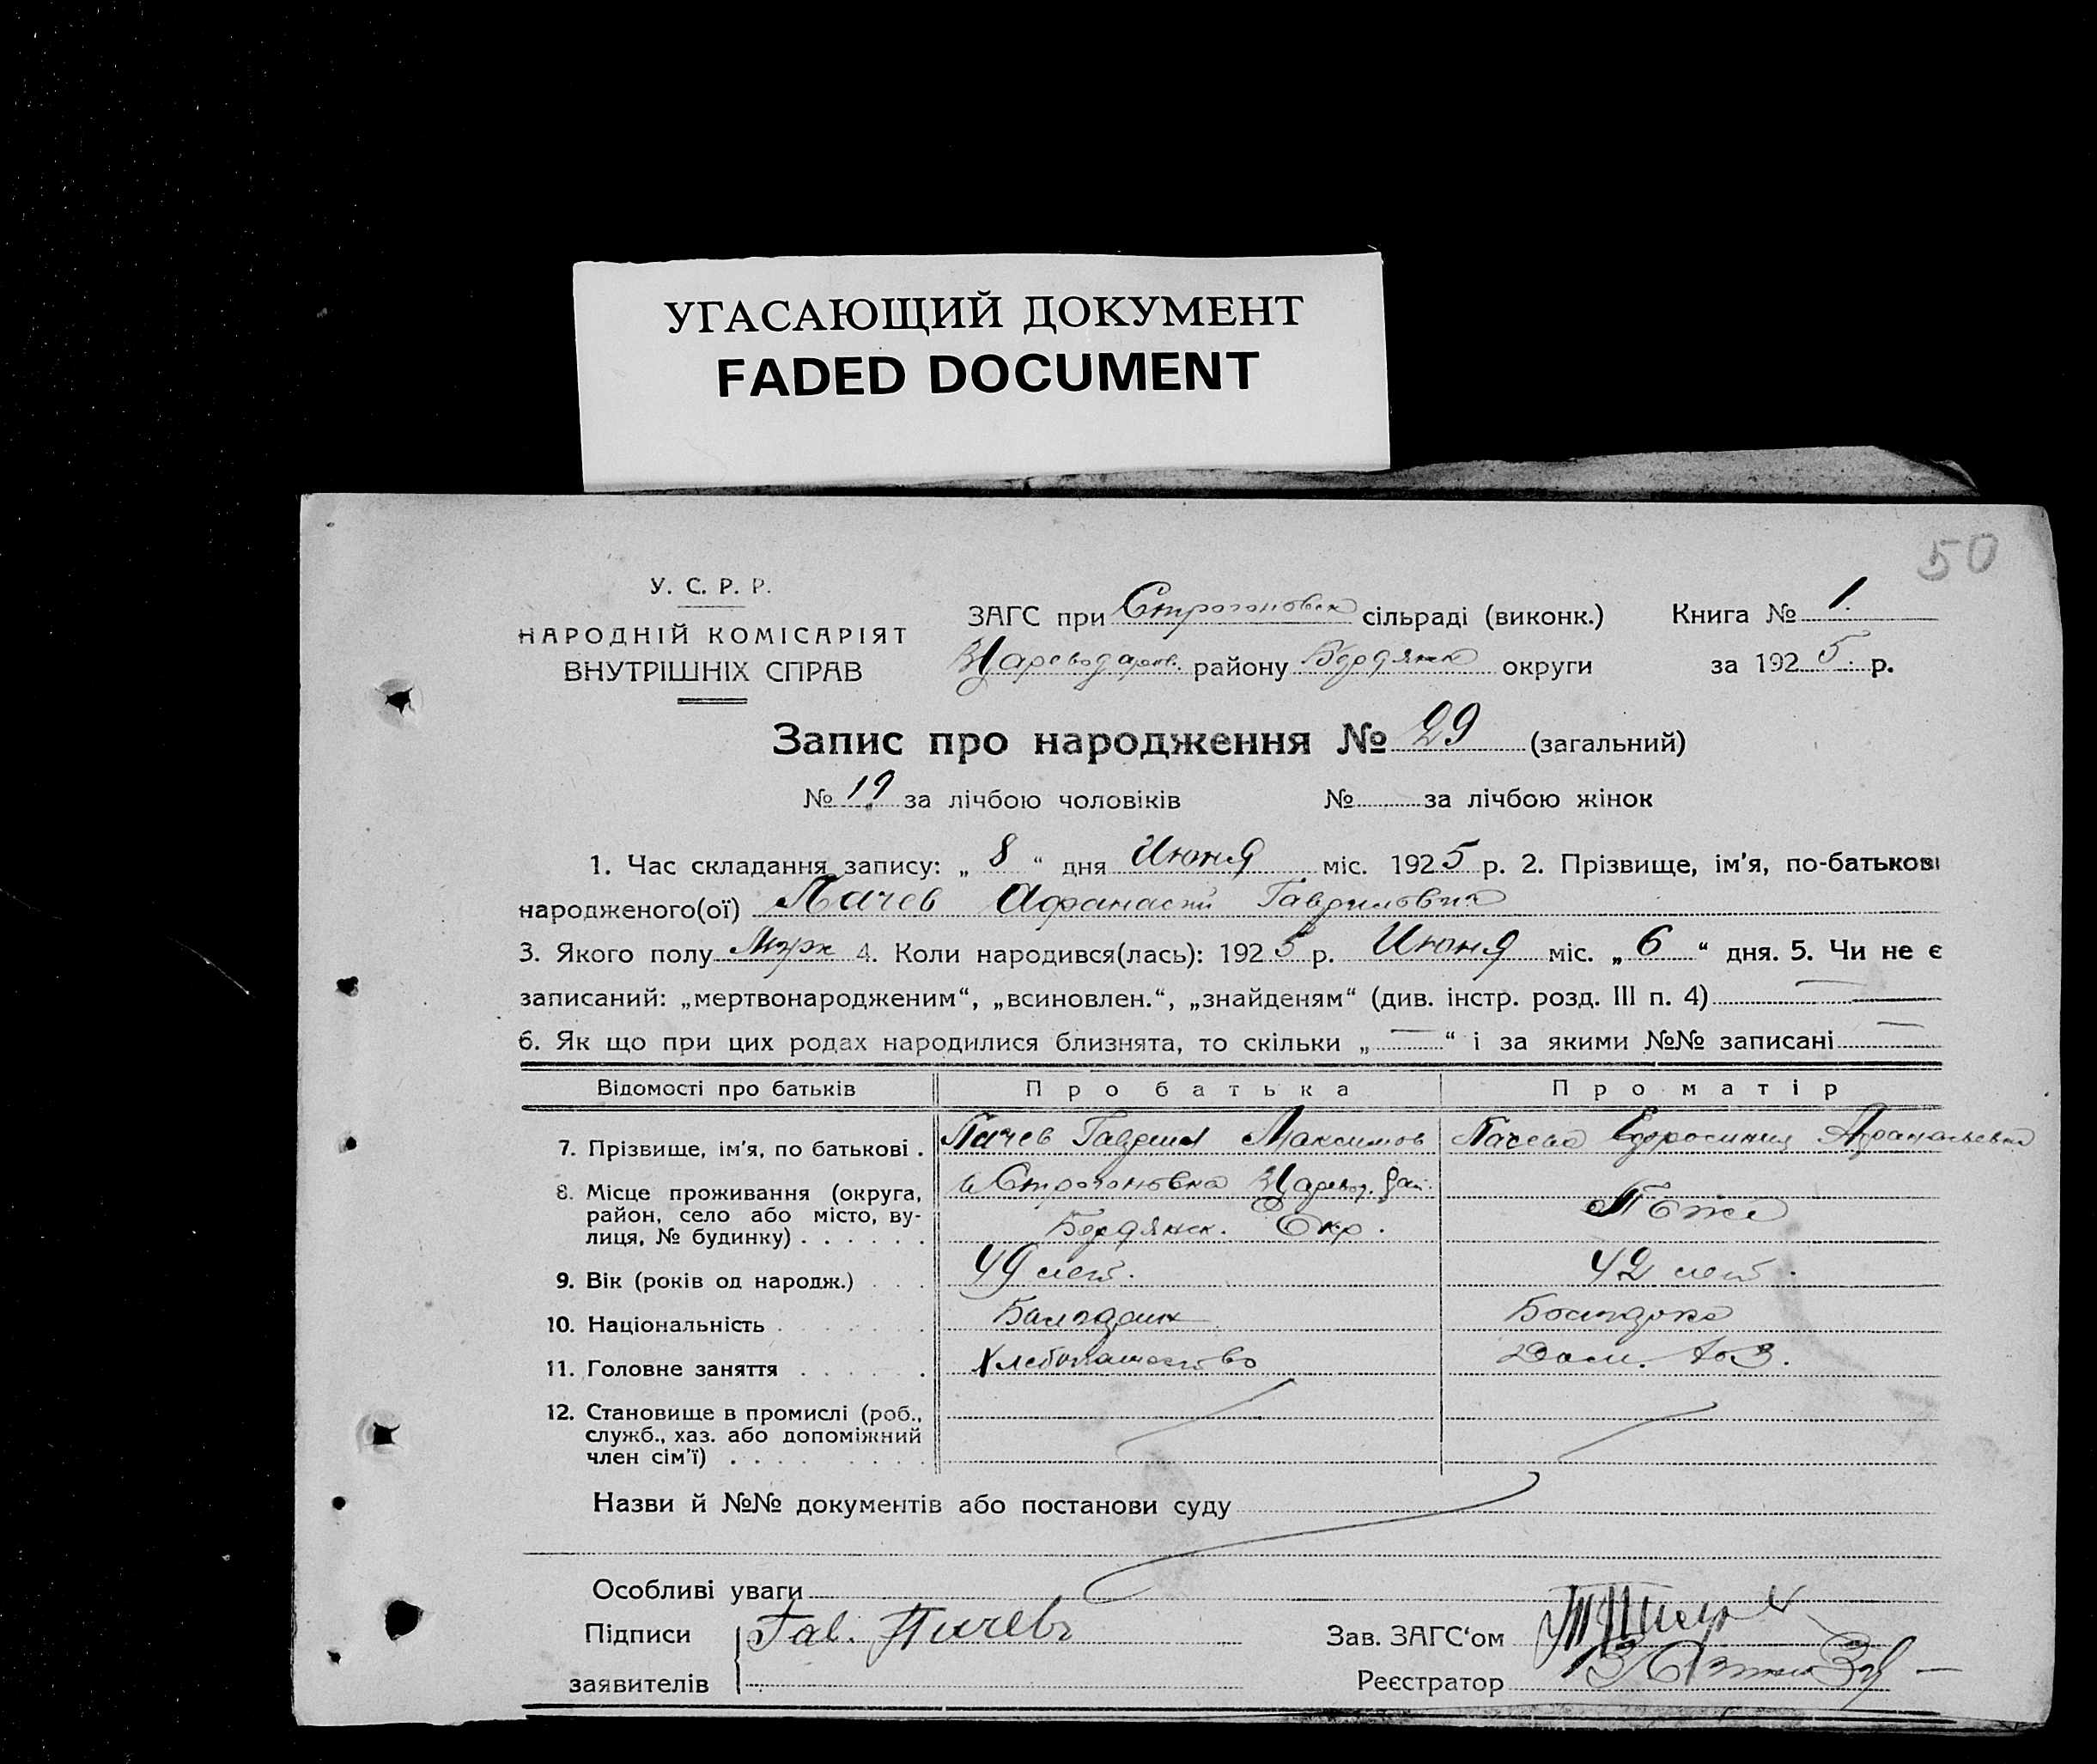 УГАСАЮЩИЙ ДОКУМЕНТ
FADED DOCUMENT
50
У. С. Р. Р.
НАРОДНІЙ КОМІСАРІЯТ
ВНУТРІШНІХ СПРАВ
ЗАГС при Строгоновск сільраді (виконк.) Книга № 1.
Цареводаров. району Бердянск округи за 1925 р.
Запис про народження № 29 (загальний)
№ 19 за лічбою чоловіків № за лічбою жінок
1. Час складання запису: „ 8 “ дня Июня міс. 1925 р. 2. Прізвище, ім'я, по-батькові
народженого(ої) Пачев Афанасий Гаврилович
3. Якого полу Муж 4. Коли народився(лась): 1925 р. Июня міс. „ 6 “ дня. 5. Чи не є
записаний: „мертвонародженим“, „всиновлен.“, „знайденям“ (див. інстр. розд. III п. 4)
6. Як що при цих родах народилися близнята, то скільки „ — “ і за якими №№ записані —
Відомості про батьків Про батька Про матір
7. Прізвище, ім'я, по батькові . Пачев Гаврил Максимов Пачева Ефросиния Афанасьевна
8. Місце проживання (округа, с Строгоновка Царевод. Рай.
район, село або місто, ву- Тоже
лиця, № будинку) . . . . . . Бердянск. Окр.
9. Вік (років од народж.) . . . 49 лет. 42 лет.
10. Національність . . . . . . Балгарин Болгарка
11. Головне заняття . . . . . . Хлебопашество Дом. хоз.
12. Становище в промислі (роб.,
служб., хаз. або допоміжний
член сім'ї) . . . . . . . . .
Назви й №№ документів або постанови суду
Особливі уваги
Підписи Гав. Пачевъ Зав. ЗАГС'ом
заявителів Реєстратор